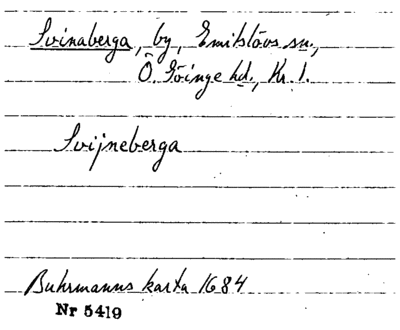 Svinaberga, by, Emitslövs sn.,
Ö. Göinge hd., Kr. l.
Svijneberga
Buhrmanns karta 1684
Nr 5419